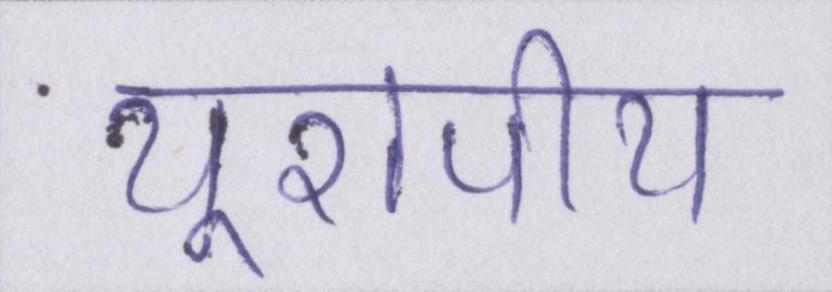 यूरापीय